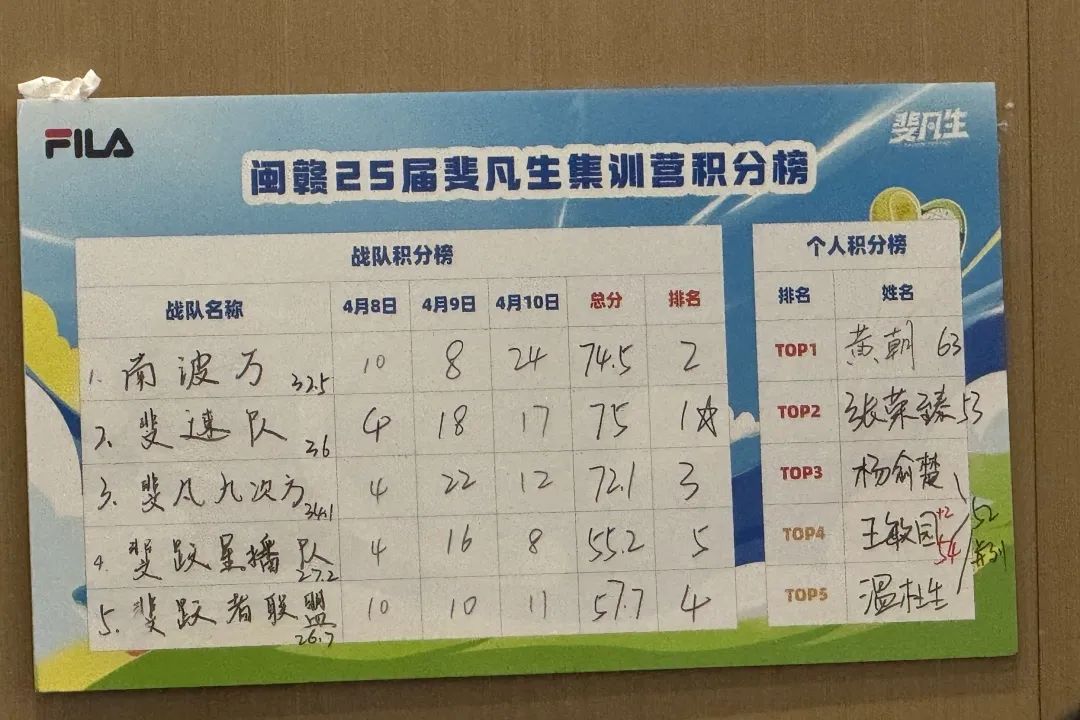 FILA
斐凡生
闽赣25届斐凡生集训营积分榜
战队积分榜
战队名称 4月8日 4月9日 4月10日 总分 排名
1. 南波万 32.5 10 8 24 74.5 2
2. 斐速队 36 4 18 17 75 1☆
3. 斐凡九次方 34.1 4 22 12 72.1 3
4. 斐跃星播队 27.2 4 16 8 55.2 5
5. 斐跃者联盟 26.7 10 10 11 57.7 4
个人积分榜
排名 姓名
TOP1 黄朝 63
TOP2 张荣臻 53
TOP3 杨俞楚
TOP4 王敏园 +2 54 52
TOP5 温杜生